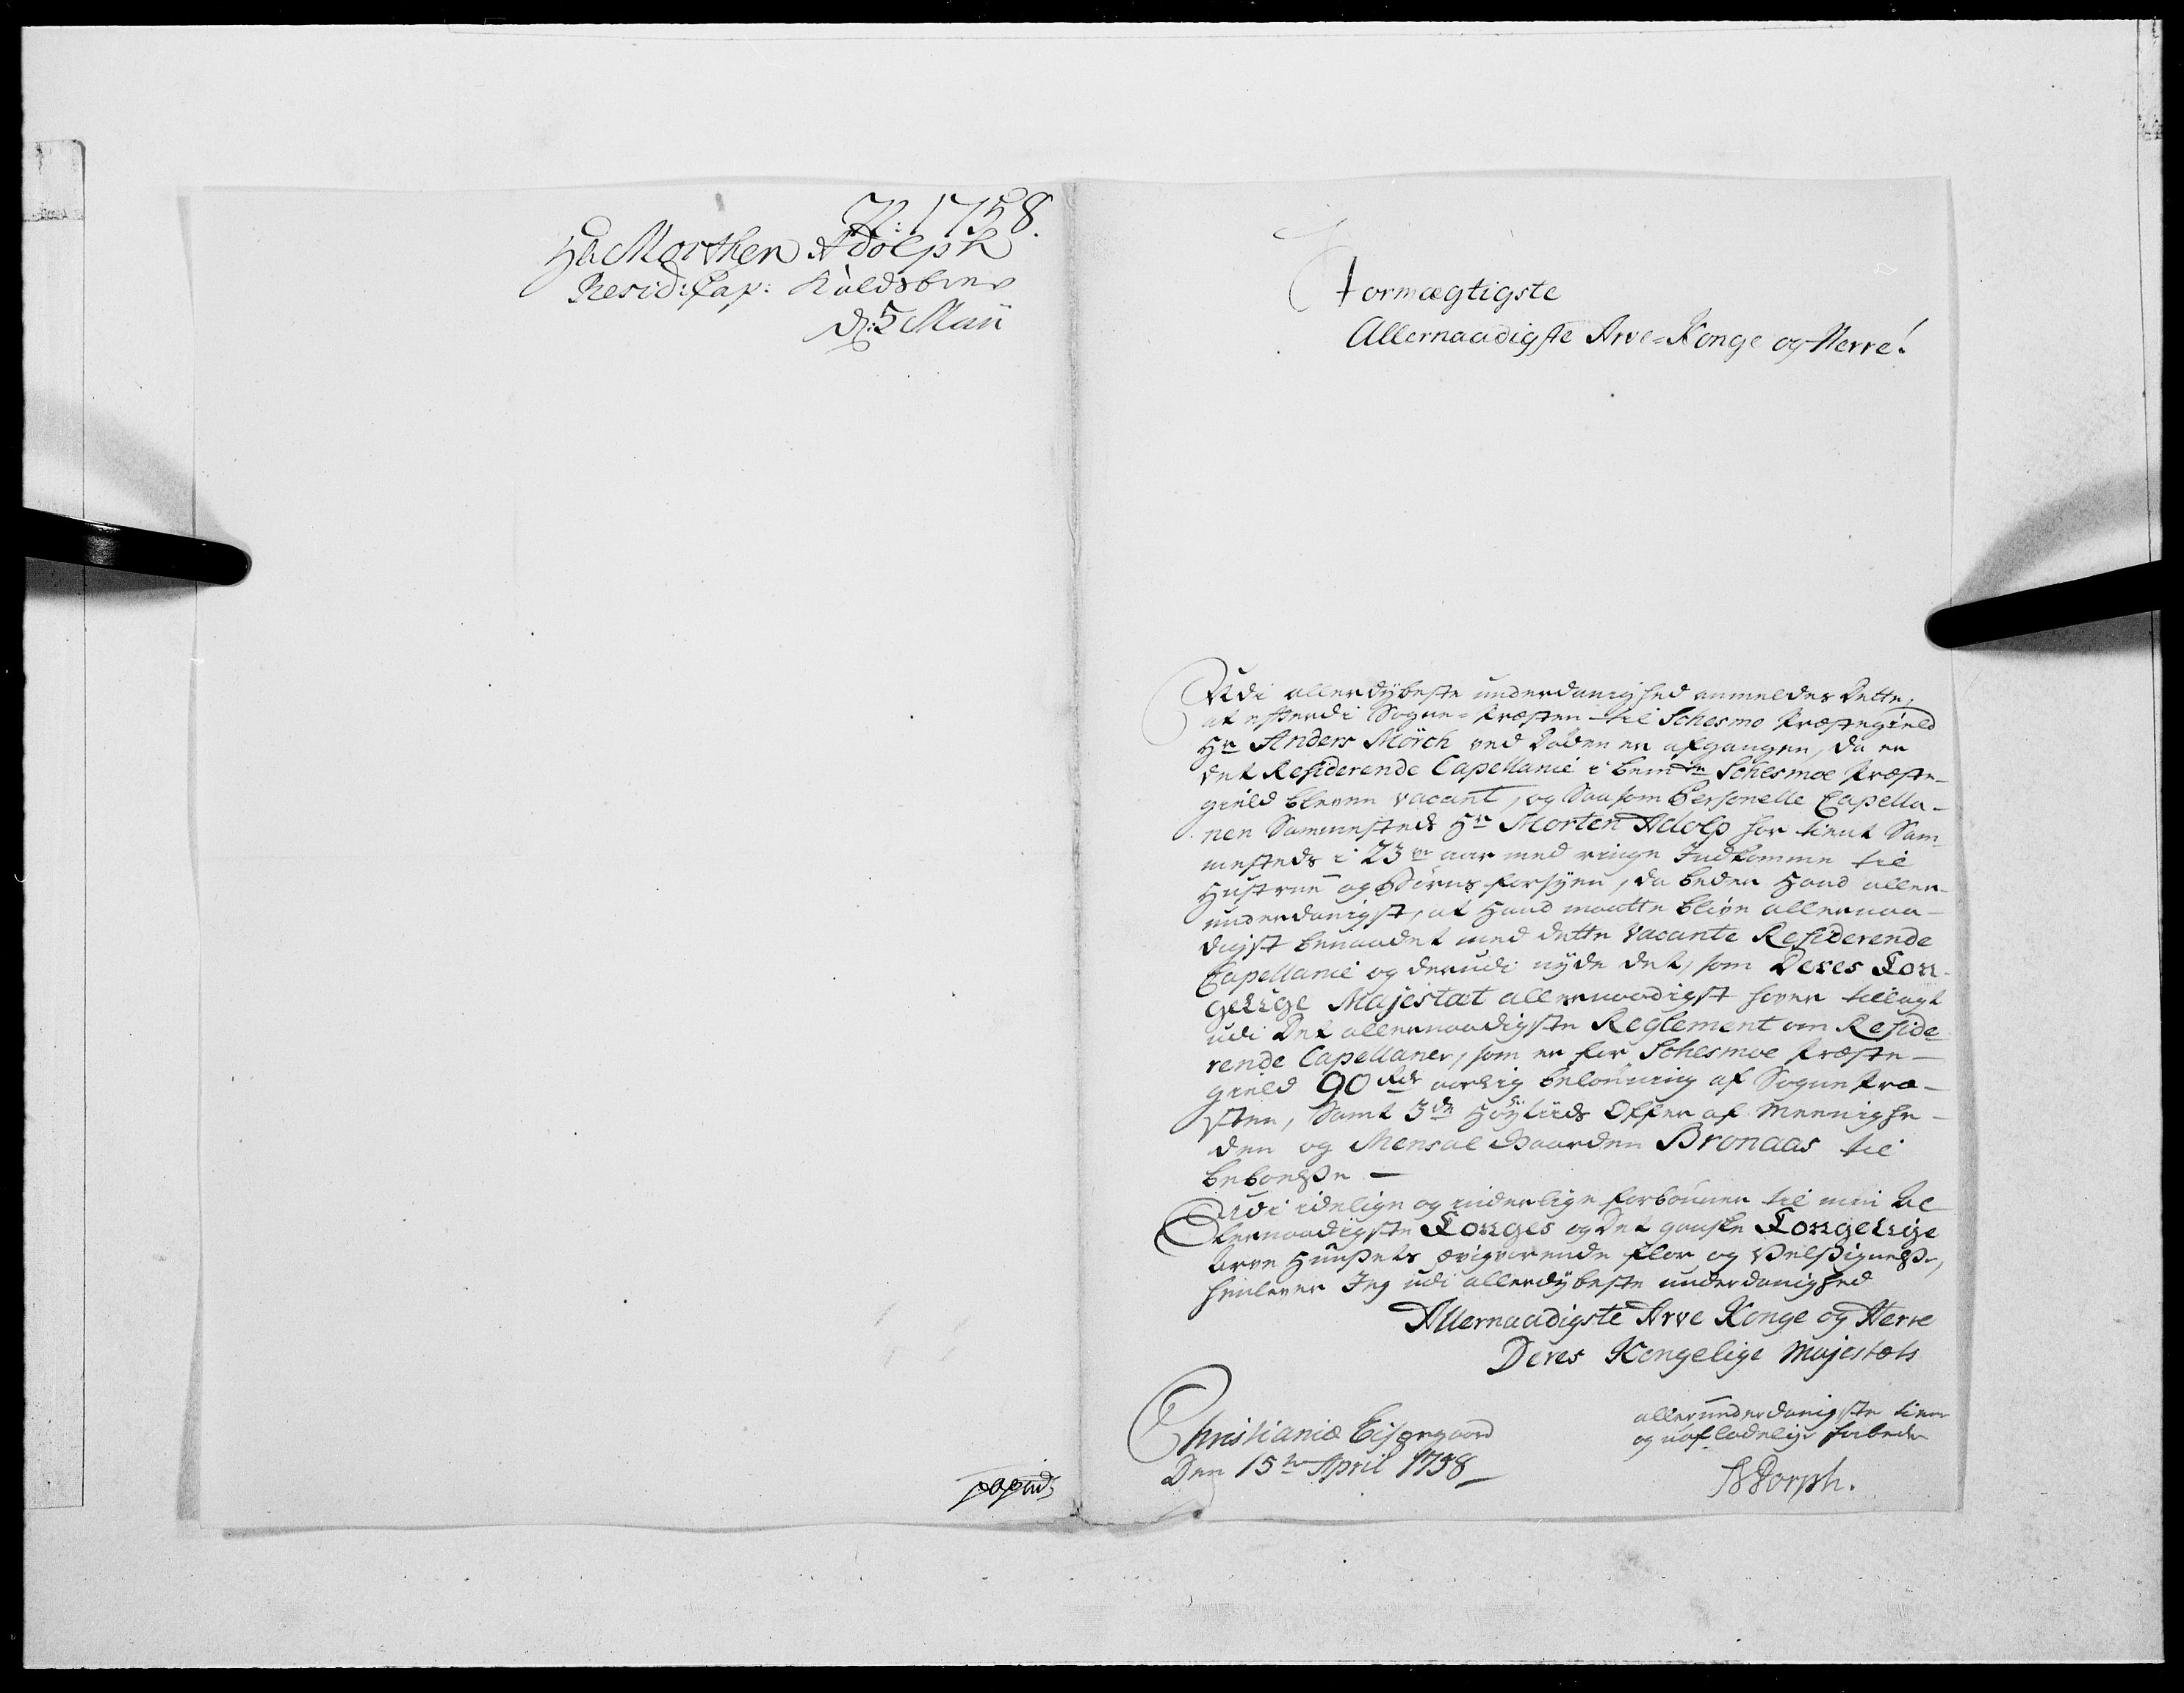 N: 1758.
Hr Morthen Adolph
Resid: Cap: Kaldsbrev
d: 5 Maii
Stormægtigste
Allernaadigste Arve-Konge og Herre!
Udi allerdÿbeste underdanighed anmeldes dette,
at efterdi Sogne-Præsten til Schesmo Præstegield
Hr Anders Mörch ved Döden er afgangen, da er
det Residerende Capellanie i bemte Schesmoe Præste-
gield bleven vacant, og saasom Personelle Capella-
nen Sammesteds Hr Morten Adolp har tient Sam-
mesteds i 23 aar med ringe Indkomme til
Hustrue og Börns forsÿn, da beder Hand aller-
underdanigst, at Hand maatte blive allernaa-
digst benaadet med dette vacante Residerende
Capellanie og derudi nÿde det, som Deres Kon-
gelige Majestæt allernaadigst haver tillagt
udi Det allernaadigste Reglement om Reside-
rende Capellaner, som er for Schesmoe Præste-
gield 90 Rdr aarlig belönning af Sognepræ-
sten, Samt 3de Höÿtiids Offer af Meenighe-
den og Mensal Gaarden Bronaas til
beboelse -
Udi idelige og inderlige forbönner til min Al-
lernaadigste Konges og Det gandske Kongelige
Arve Huusets ævigvarende flor og Velsignelse,
henlever Jeg udi allerdÿbeste underdanighed
Allernaadigste Arve Konge og Herre
Deres Kongelige Majestæts
Christianiæ Bispegaard
Den 15de April 1758
allerunderdanigste tiener
og uafladelige forbeder
N Dorph.